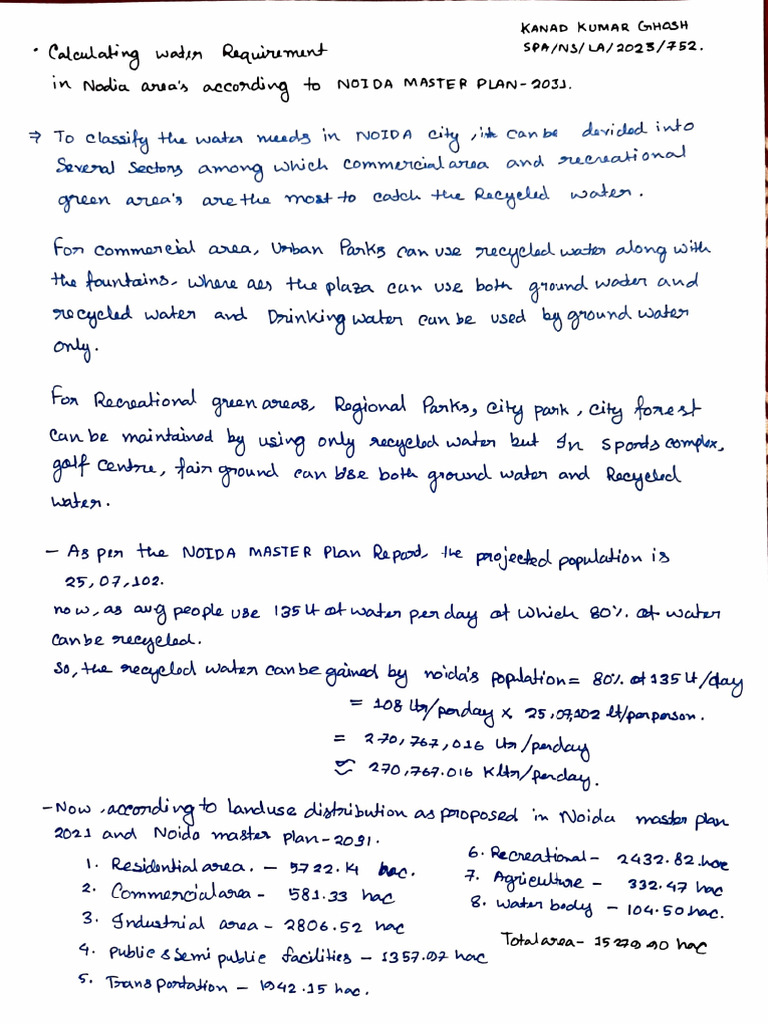 KANAD KUMAR GHOSH
SPA/NS/LA/2023/752.
• Calculating water Requirement
in Nodia area's according to NOIDA MASTER PLAN-2031.
⇒ To classify the water needs in NOIDA city, it can be devided into
Several Sectors among which commercial area and recreational
green area's are the most to catch the Recycled water.
For commercial area, Urban Parks can use recycled water along with
the fountains, where aes the plaza can use both ground water and
recycled water and Drinking water can be used by ground water
only.
For Recreational green areas, Regional Parks, city park, city forest
can be maintained by using only recycled water but In sports complex,
golf centre, fair ground can use both ground water and Recycled
water.
- As per the NOIDA MASTER Plan Report, the projected population is
25,07,102.
now, as avg people use 135 lt of water per day of which 80% of water
can be recycled.
So, the recycled water can be gained by noida's population = 80% of 135 lt/day
= 108 ltr/perday × 25,07,102 lt/perperson.
= 270,767,016 ltr/perday
≈ 270,767.016 Kltr/perday.
- Now, according to landuse distribution as proposed in Noida master plan
2021 and Noida master plan-2031.
1. Residential area. - 5722.14 hac.
2. Commercial area - 581.33 hac
3. Industrial area - 2806.52 hac
4. public & semi public facilities - 1357.97 hac
5. Transportation - 1942.15 hac.
6. Recreational - 2432.82 hac
7. Agriculture - 332.47 hac
8. water body - 104.50 hac.
Total area - 15279.90 hac